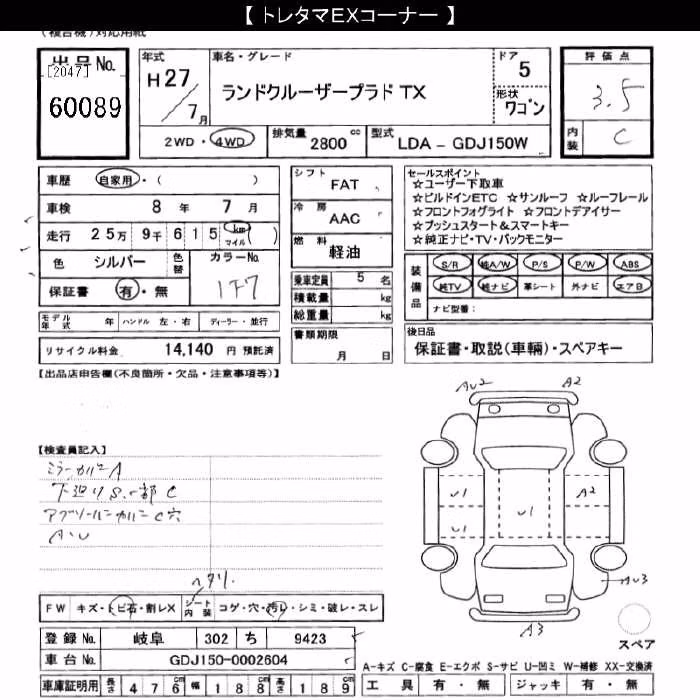 【 トレタマEXコーナー 】
(複合機)対応用紙
出品No. [2047] 60089
年式 H27/7月
車名・グレード ランドクルーザープラド TX
ドア 5
形状 ワゴン
評価点 3.5
内装 C
2WD・4WD 排気量 2800cc 型式 LDA - GDJ150W
車歴 自家用・( )
車検 8年 7月
走行 25万 9千 615 km マイル ( )
色 シルバー 色替 カラーNo. 1F7
保証書 有・無
モデル年式 年 ハンドル 左・右 ディーラー・並行
リサイクル料金 14,140 円 預託済
シフト FAT
冷房 AAC
燃料 軽油
乗車定員 5 名
積載量 kg
総重量 kg
書類期限 月 日
セールスポイント
☆ユーザー下取車
☆ビルドインETC ☆サンルーフ ☆ルーフレール
☆フロントフォグライト ☆フロントデアイサー
☆プッシュスタート&スマートキー
☆純正ナビ・TV・バックモニター
装備品 S/R 純A/W P/S P/W ABS
純TV 純ナビ 革シート 外ナビ エアB
ナビ型番:
後日品
保証書・取説(車輛)・スペアキー
【出品店申告欄(不良箇所・欠品・注意事項等)】
【検査員記入】
ミラーカバーA
下廻りS.一部C
アブソーバーカバーC穴
A・U
ヘタリ.
FW キズ・トビ石・割レX シート内装 コゲ・穴・汚レ・シミ・破レ・スレ
登録No. 岐阜 302 ち 9423
車台No. GDJ150-0002604
車庫証明用 長さ 476cm 幅 188cm 高さ 189cm
AU2 A2
U1 A2
U1 U1
AU3
A3
スペア
A-キズ C-腐食 E-エクボ S-サビ U-凹ミ W-補修 XX-交換済
工具 有・無 ジャッキ 有・無